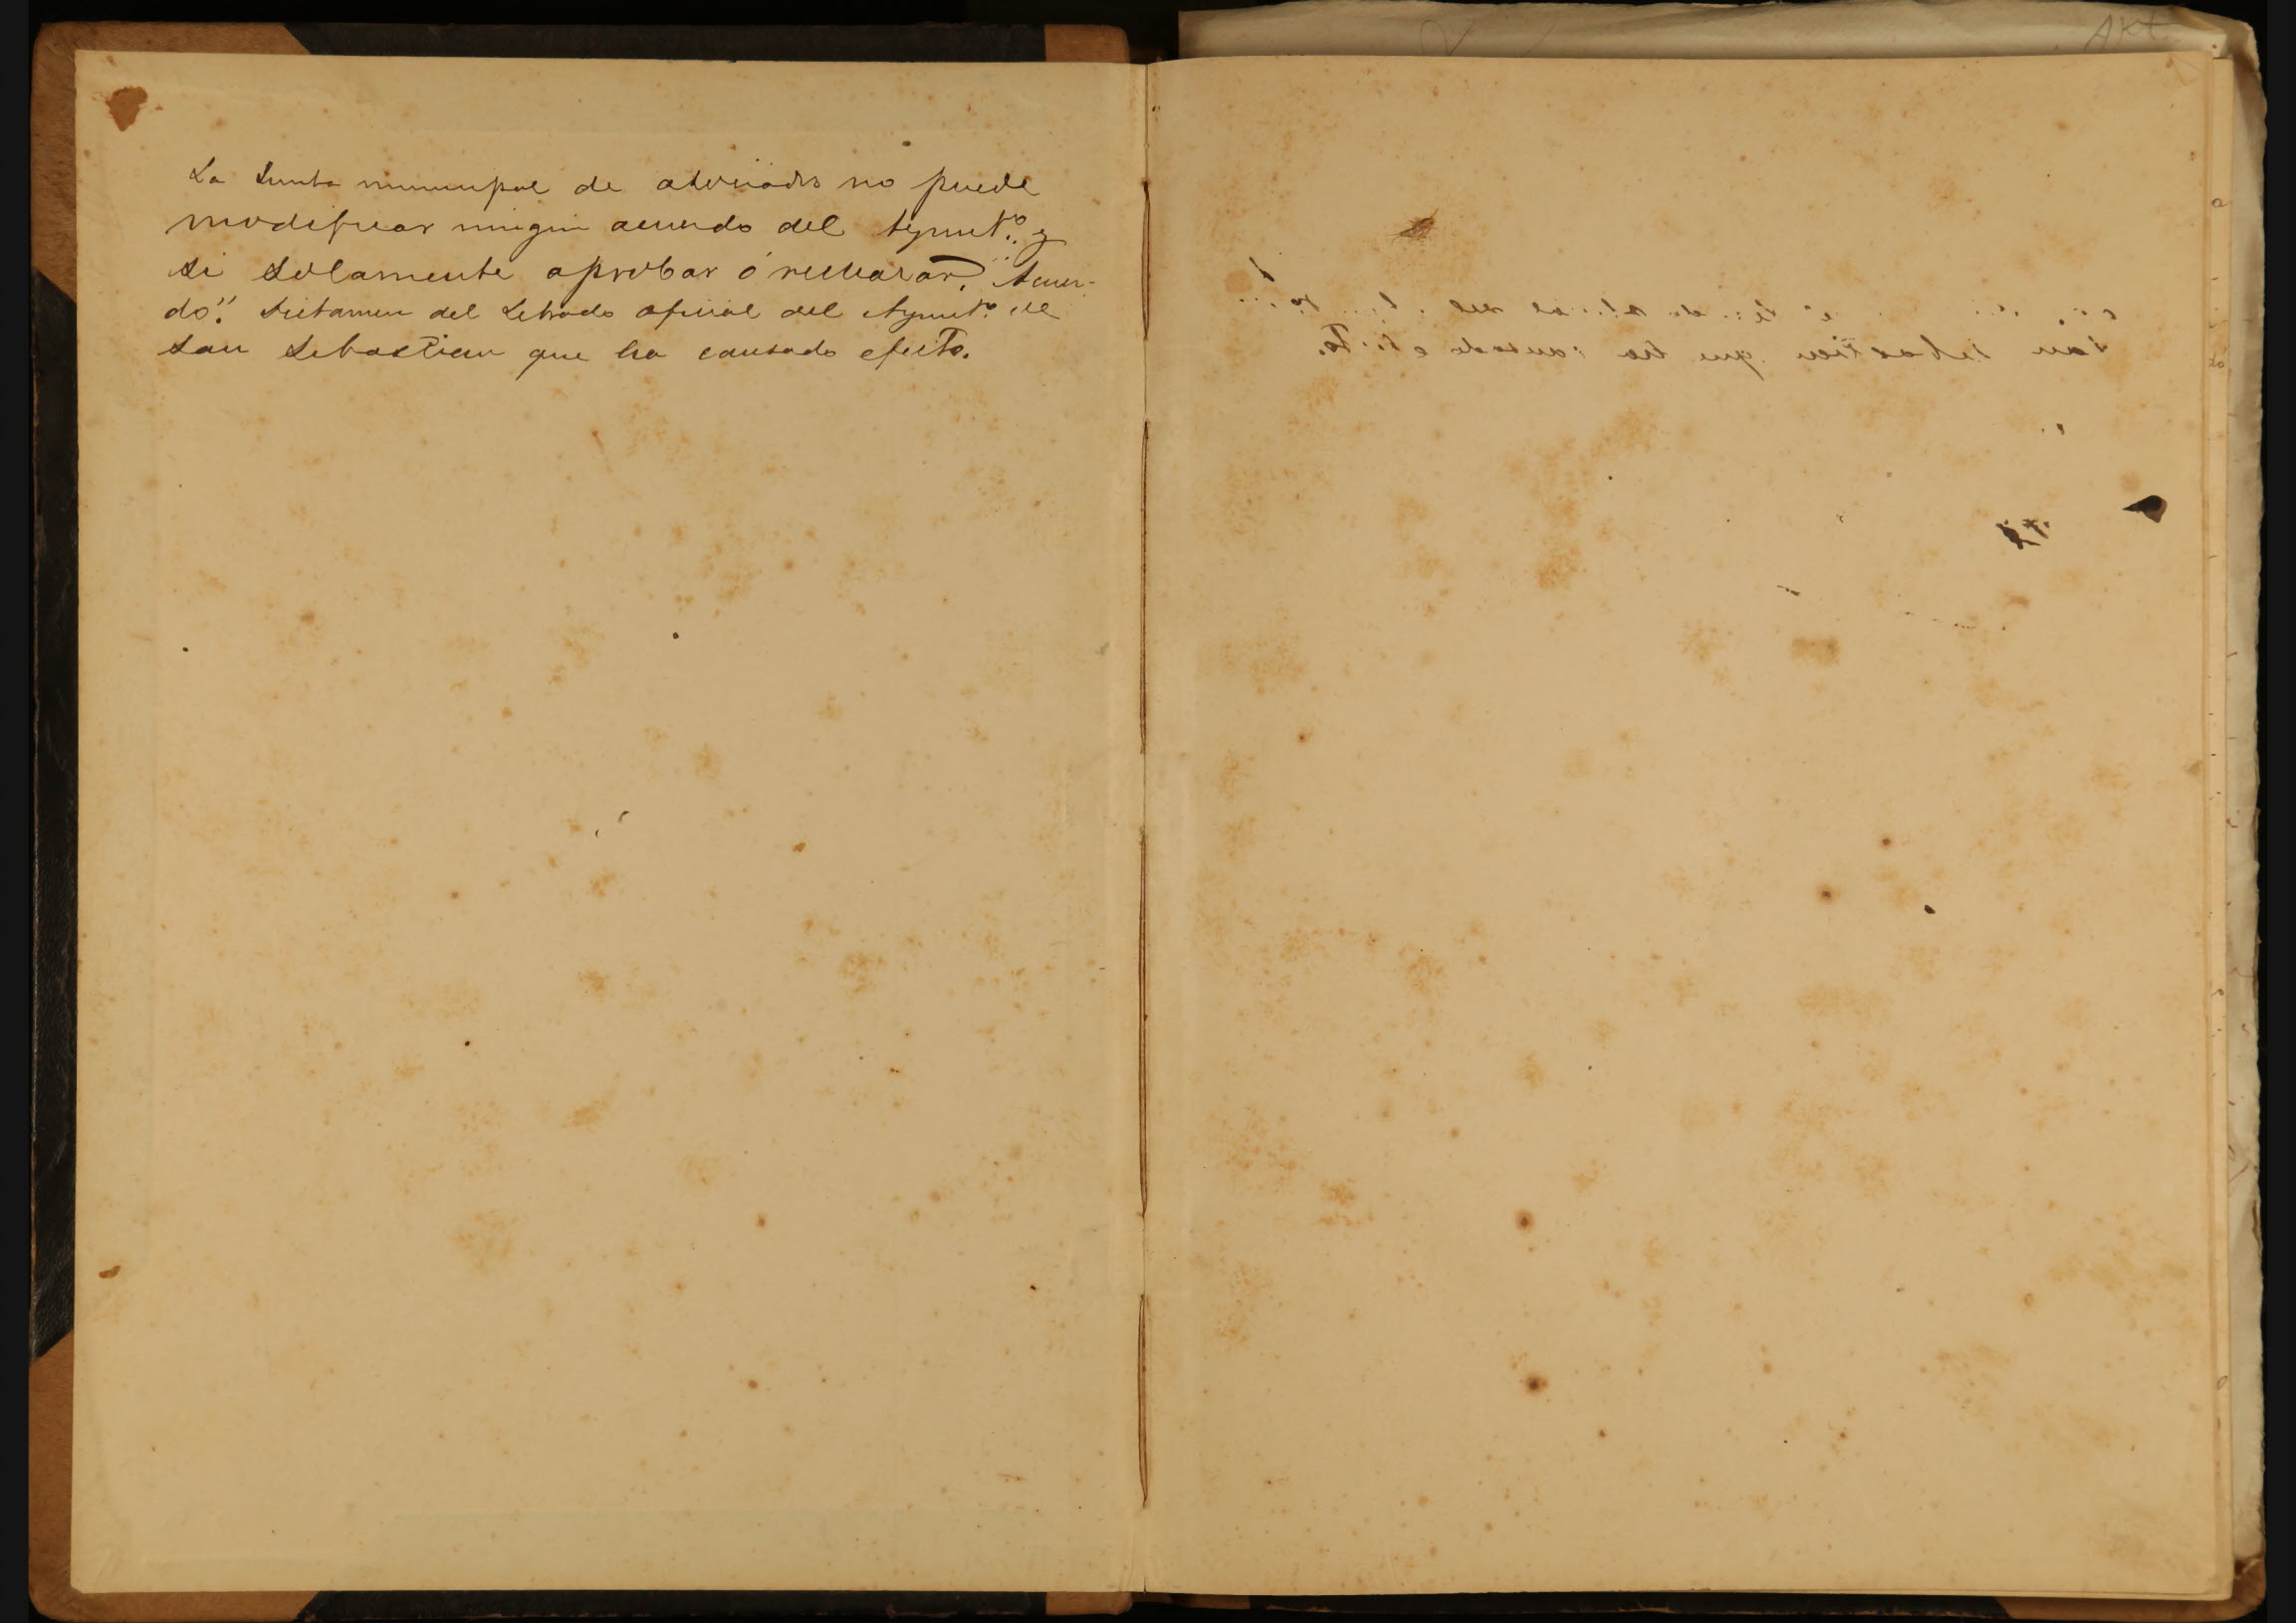 La Junta municipal de asociados no puede
modificar ningun acuerdo del Ayunt.º y
si solamente aprobar ó rechazar. "Acuer-
do". Dictamen del Letrado oficial del Ayunt.º de
San Sebastian que ha causado efecto.